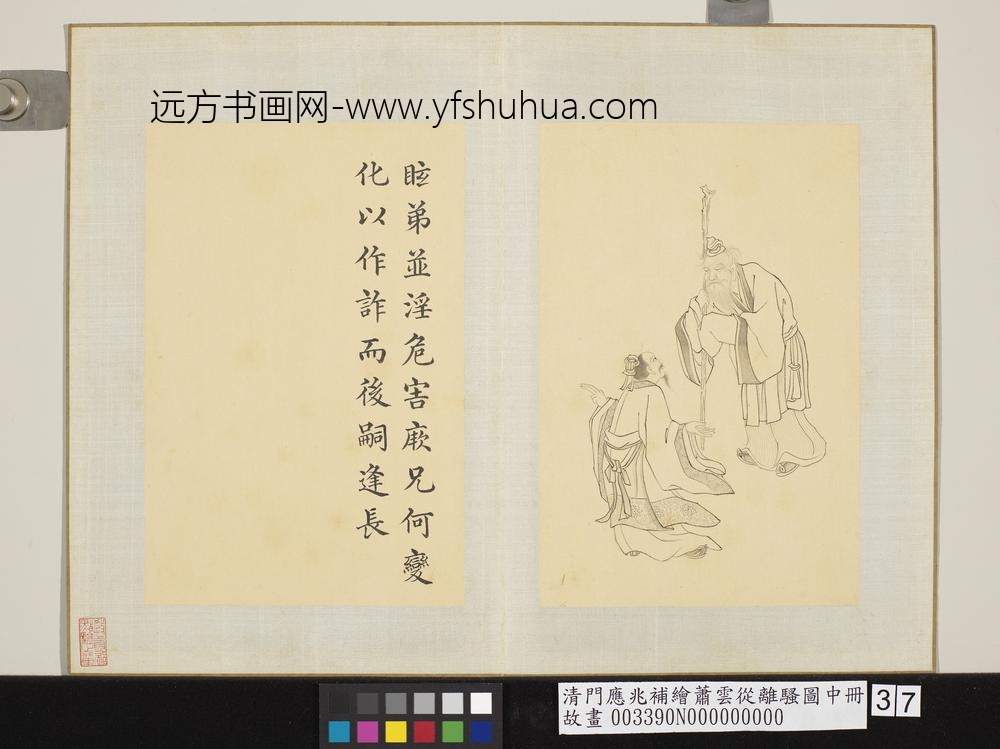 远方书画网-www.yfshuhua.com
眩弟並淫危害厥兄何變
化以作詐而後嗣逢長
清門應兆補繪蕭雲從離騷圖中冊
故畫 003390N000000000
37